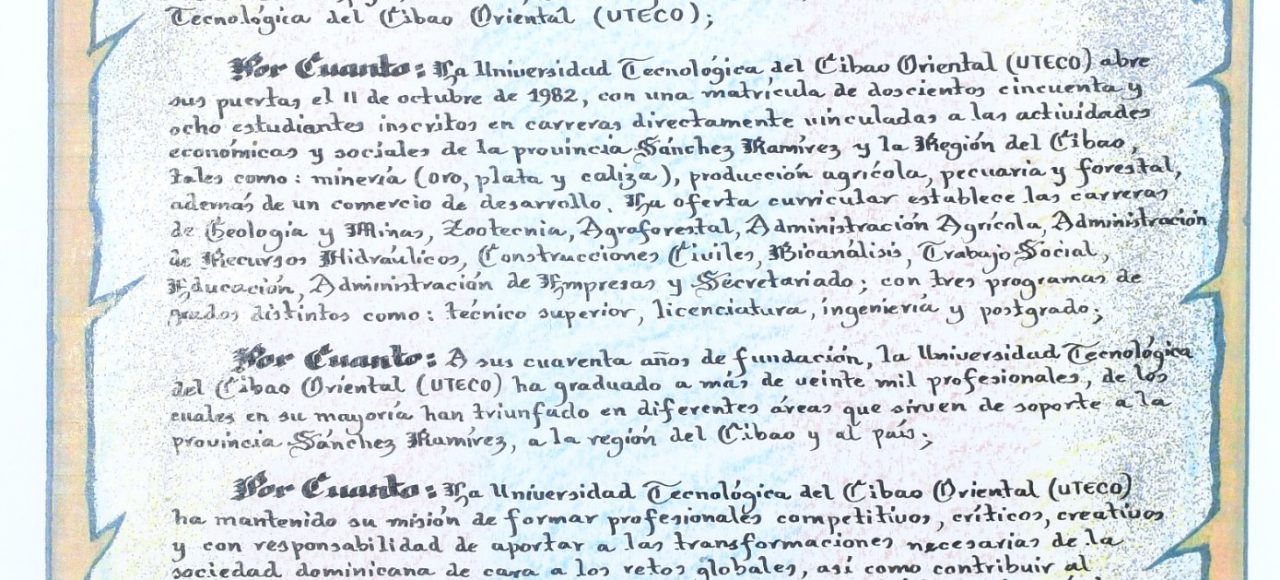 Tecnológica del Cibao Oriental (UTECO);
Por Cuanto: La Universidad Tecnológica del Cibao Oriental (UTECO) abre
sus puertas el 11 de octubre de 1982, con una matrícula de doscientos cincuenta y
ocho estudiantes inscritos en carreras directamente vinculadas a las actividades
económicas y sociales de la provincia Sánchez Ramírez y la Región del Cibao,
tales como: minería (oro, plata y caliza), producción agrícola, pecuaria y forestal,
además de un comercio de desarrollo. La oferta curricular establece las carreras
de Geología y Minas, Zootecnia, Agroforestal, Administración Agrícola, Administración
de Recursos Hidráulicos, Construcciones Civiles, Bioanálisis, Trabajo Social,
Educación, Administración de Empresas y Secretariado; con tres programas de
grados distintos como: técnico superior, licenciatura, ingeniería y postgrado;
Por Cuanto: A sus cuarenta años de fundación, la Universidad Tecnológica
del Cibao Oriental (UTECO) ha graduado a más de veinte mil profesionales, de los
cuales en su mayoría han triunfado en diferentes áreas que sirven de soporte a la
provincia Sánchez Ramírez, a la región del Cibao y al país;
Por Cuanto: La Universidad Tecnológica del Cibao Oriental (UTECO)
ha mantenido su misión de formar profesionales competitivos, críticos, creativos
y con responsabilidad de aportar a las transformaciones necesarias de la
sociedad dominicana de cara a los retos globales, así como contribuir al